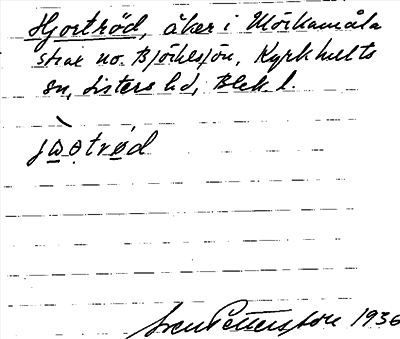 Hjortröd, åker i Mörkamåla
strax no. Björklsjön, Kyrkhults
sn, Listers hd, Blek. l.
Sven Pettersson 1936